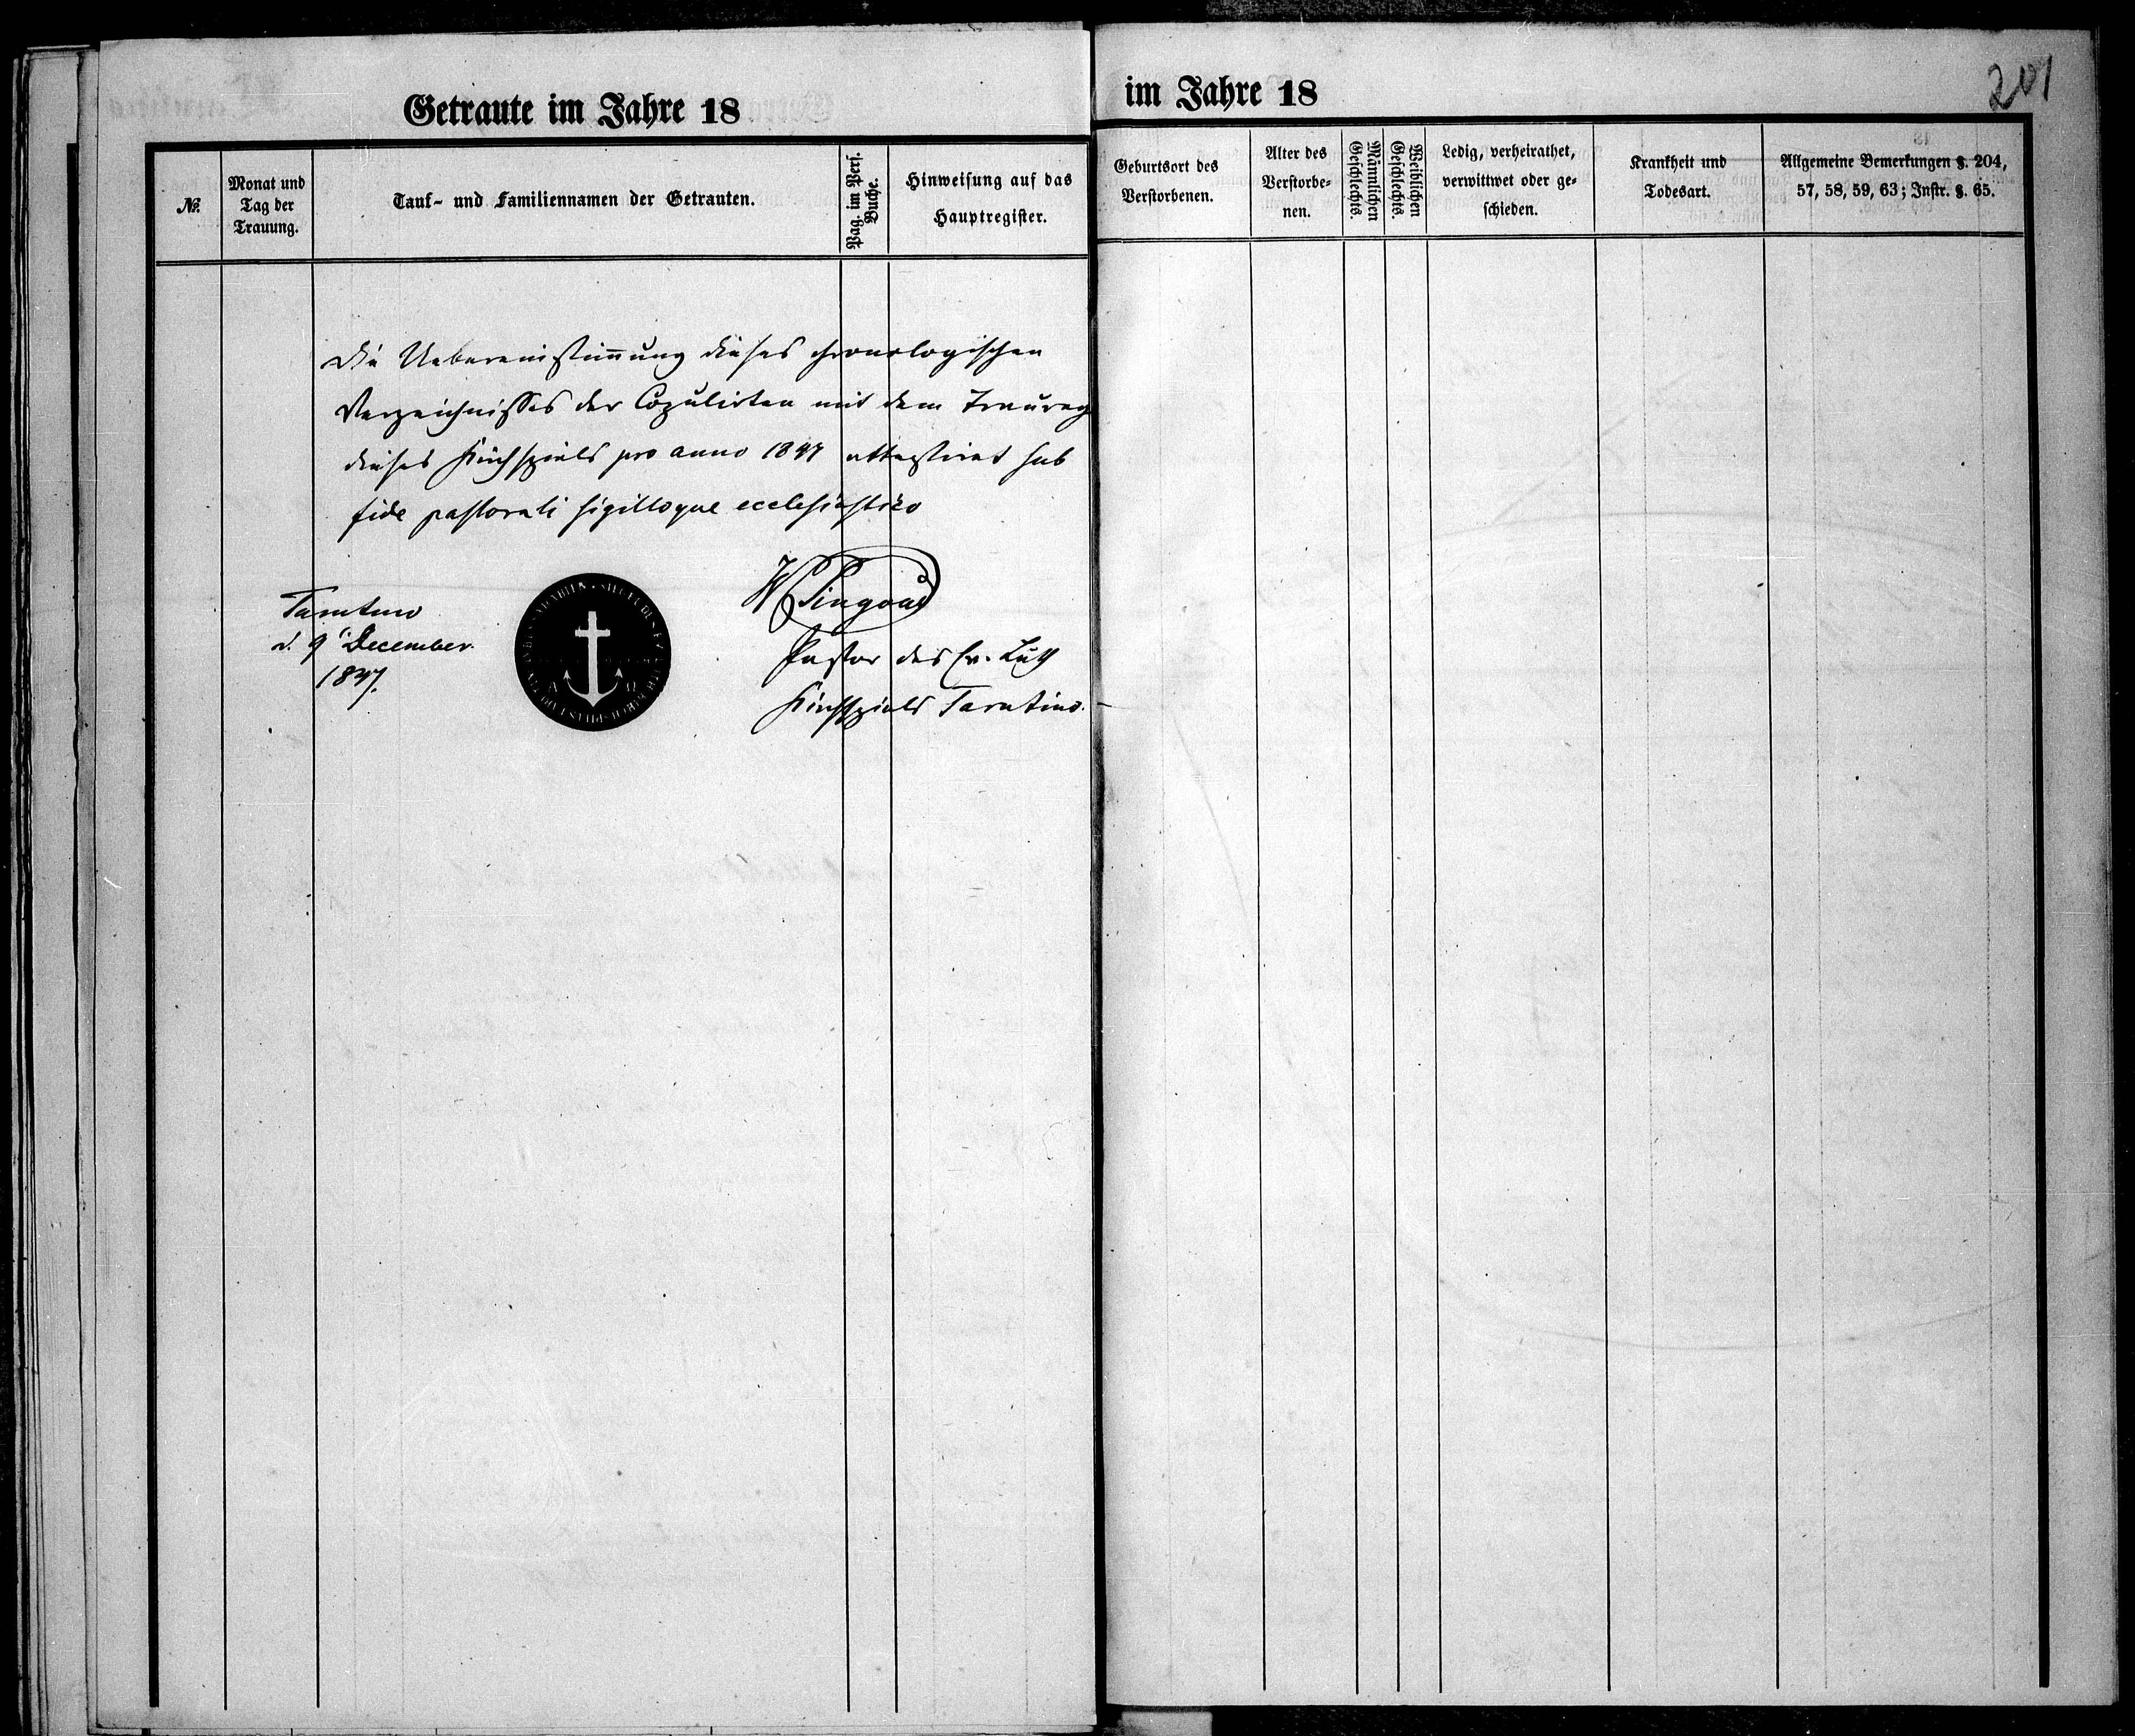 Getraute im Jahre 18
№.
Monat und
Tag der
Trauung.
Tauf- und Familiennamen der Getrauten.
Pag. im Pers.
Buche.
Hinweisung auf das
Hauptregister.
Die Uebereinstim̄ung dieses chronologischen
Verzeichnisses der Copulirten mit dem Traureg
dieses Kirchspiels pro anno 1847 attestiret sub
fide pastorali sigilloque ecclesiastico
Tarutino
d. 9t December.
1847.
W Pingoud
Pastor des Ev. Luth
Kirchspiels Tarutino.
im Jahre 18
201
Geburtsort des
Verstorbenen.
Alter des
Verstorbe-
nen.
Männlichen
Geschlechts.
Weiblichen
Geschlechts.
Ledig, verheirathet,
verwittwet oder ge-
schieden.
Krankheit und
Todesart.
Allgemeine Bemerkungen §. 204,
57, 58, 59, 63; Instr. §. 65.